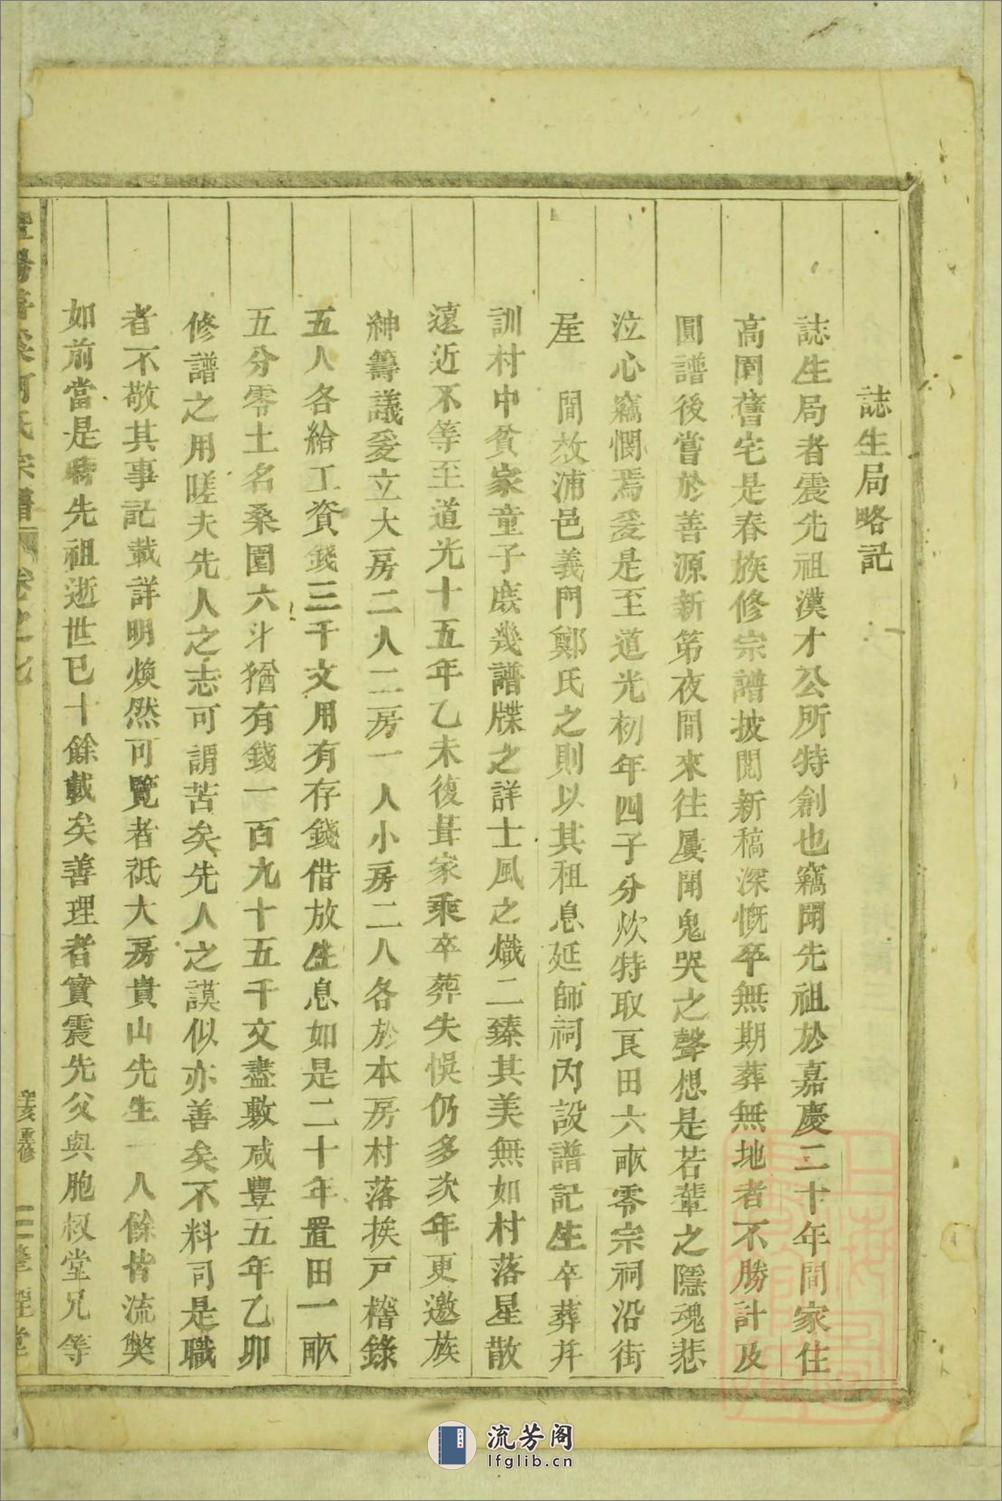 誌生局略記
誌生局者震先祖漢才公所特創也竊聞先祖於嘉慶二十年間家住
高園舊宅是春族修宗譜披閱新稿深慨卒無期葬無地者不勝計及
圓譜後嘗於善源新第夜間來往屢聞鬼哭之聲想是若輩之隱魂悲
泣心竊憫焉爰是至道光初年四子分炊特取良田六畝零宗祠沿街
屋 間效浦邑義門鄭氏之則以其租息延師祠內設譜記生卒葬幷
訓村中貧家童子庶幾譜牒之詳士風之熾二臻其美無如村落星散
遠近不等至道光十五年乙未復葺家乘卒葬失悞仍多次年更邀族
紳籌議爰立大房二人二房一人小房二人各於本房村落挨戶稽錄
五人各給工資錢三千文用有存錢借放生息如是二十年置田一畝
五分零土名桑園六斗猶有錢一百九十五千文盡敷咸豐五年乙卯
修譜之用嗟夫先人之志可謂苦矣先人之謨似亦善矣不料司是職
者不敬其事記載詳明煥然可覽者祗大房貴山先生一人餘皆流獘
如前當是時先祖逝世已十餘載矣善理者實震先父與胞叔堂兄等
何氏宗譜 卷之
辛亥重修
堂
流芳阁
lfglib.cn